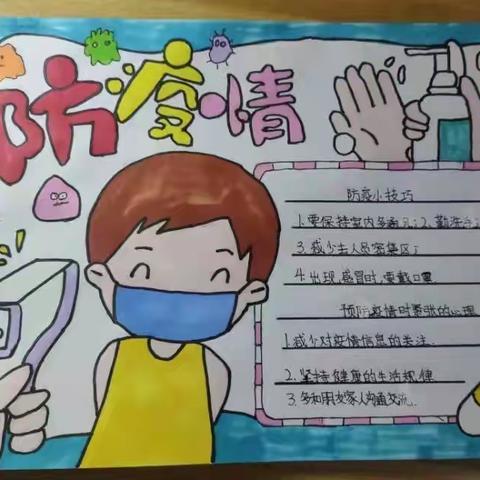 防疫情
防疫小技巧
1.要保持室内多通风；2、勤洗手；
3.减少去人员密集区；
4.出现感冒时，要戴口罩.
预防疫情时紧张的心理
1.减少对疫情信息的关注.
2.坚持健康的生活规律
3.多和朋友家人沟通交流.